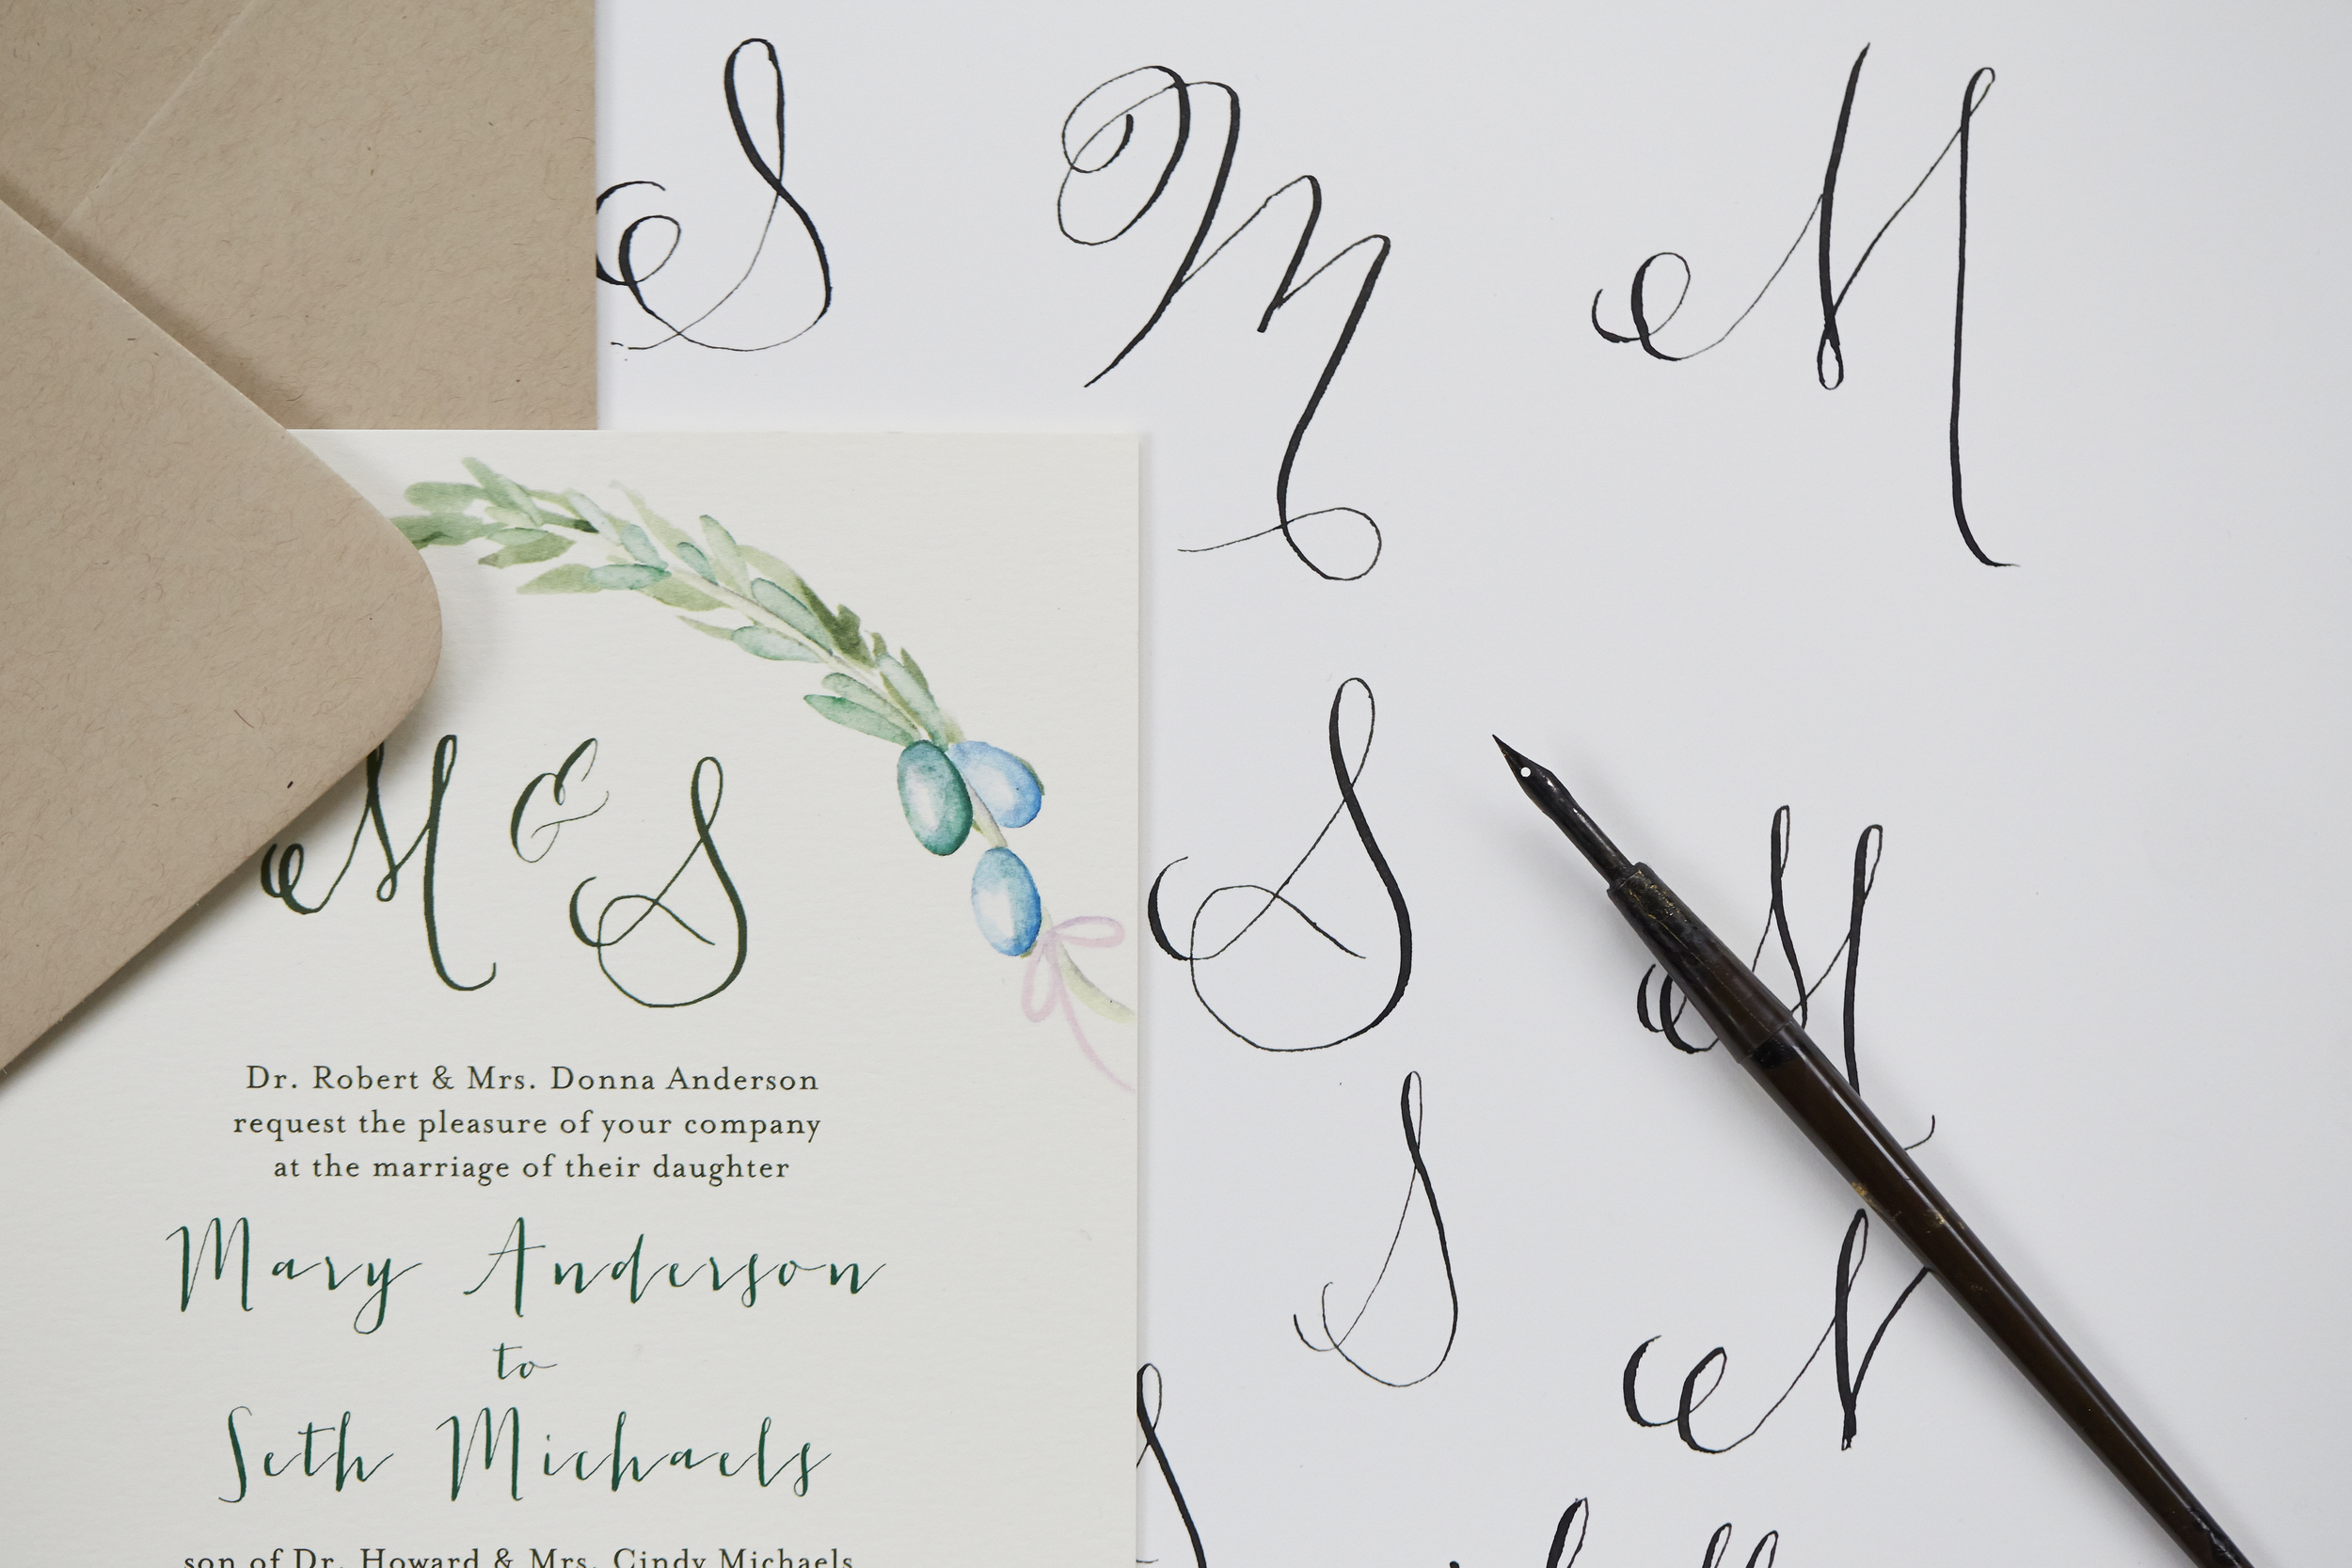 S M M
M & S
Dr. Robert & Mrs. Donna Anderson
request the pleasure of your company
at the marriage of their daughter
Mary Anderson
to
Seth Michaels
son of Dr. Howard & Mrs. Cindy Michaels
S M
S